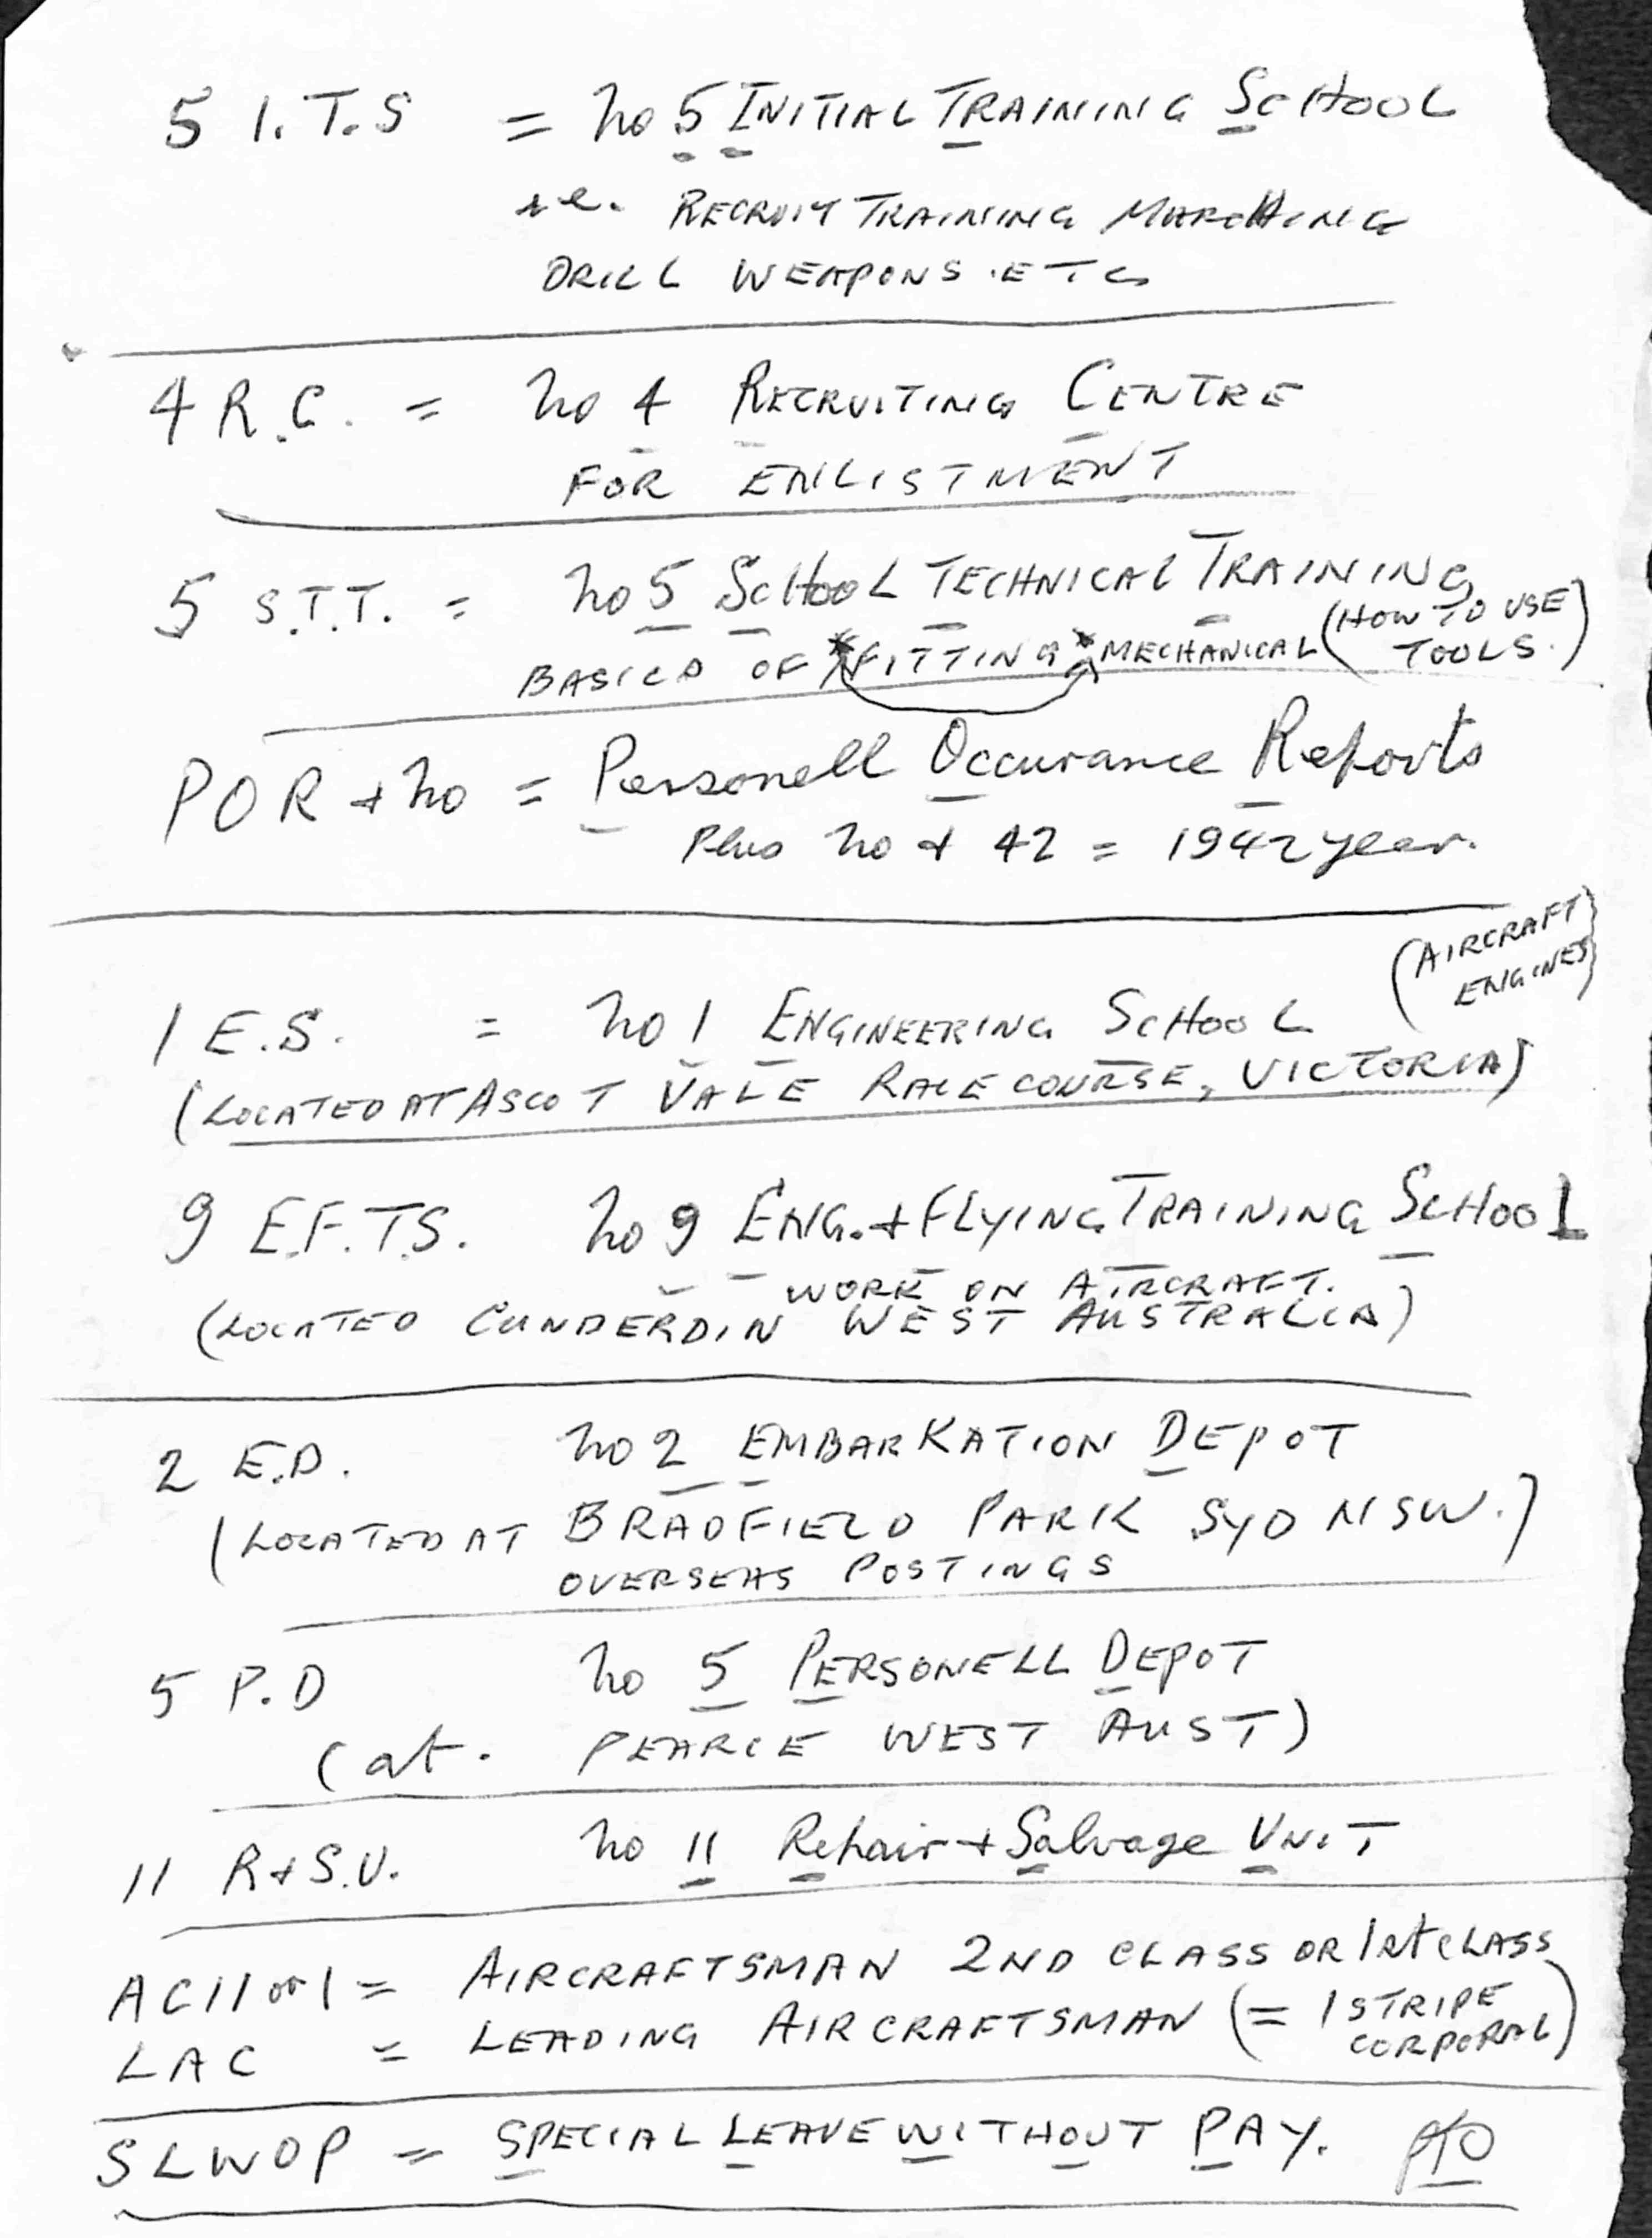 5 I.T.S = no 5 INITIAL TRAINING SCHOOL
i.e. RECRUIT TRAINING MARCHING
DRILL WEAPONS .ETC
4 R.C. = no 4 RECRUITING CENTRE
FOR ENLISTMENT
5 S.T.T. = no 5 SCHOOL TECHNICAL TRAINING
BASICS OF *FITTING* MECHANICAL (HOW TO USE
TOOLS.)
POR + no = Personell Occurance Reports
Plus no + 42 = 1942 year.
(AIRCRAFT
ENGINES)
1 E.S. = no 1 ENGINEERING SCHOOL
(LOCATED AT ASCOT VALE RACE COURSE, VICTORIA)
9 E.F.T.S. no 9 ENG. + FLYING TRAINING SCHOOL
WORK ON AIRCRAFT.
(LOCATED CUNDERDIN WEST AUSTRALIA)
2 E.D. no 2 EMBARKATION DEPOT
(LOCATED AT BRADFIELD PARK SYD NSW.)
OVERSEAS POSTINGS
5 P.D no 5 PERSONELL DEPOT
(at. PEARCE WEST AUST)
11 R+S.U. no 11 Repair + Salvage UNIT
AC11 or 1 = AIRCRAFTSMAN 2ND CLASS OR 1st CLASS
LAC = LEADING AIRCRAFTSMAN (= 1 STRIPE
CORPORAL)
SLWOP = SPECIAL LEAVE WITHOUT PAY. PTO